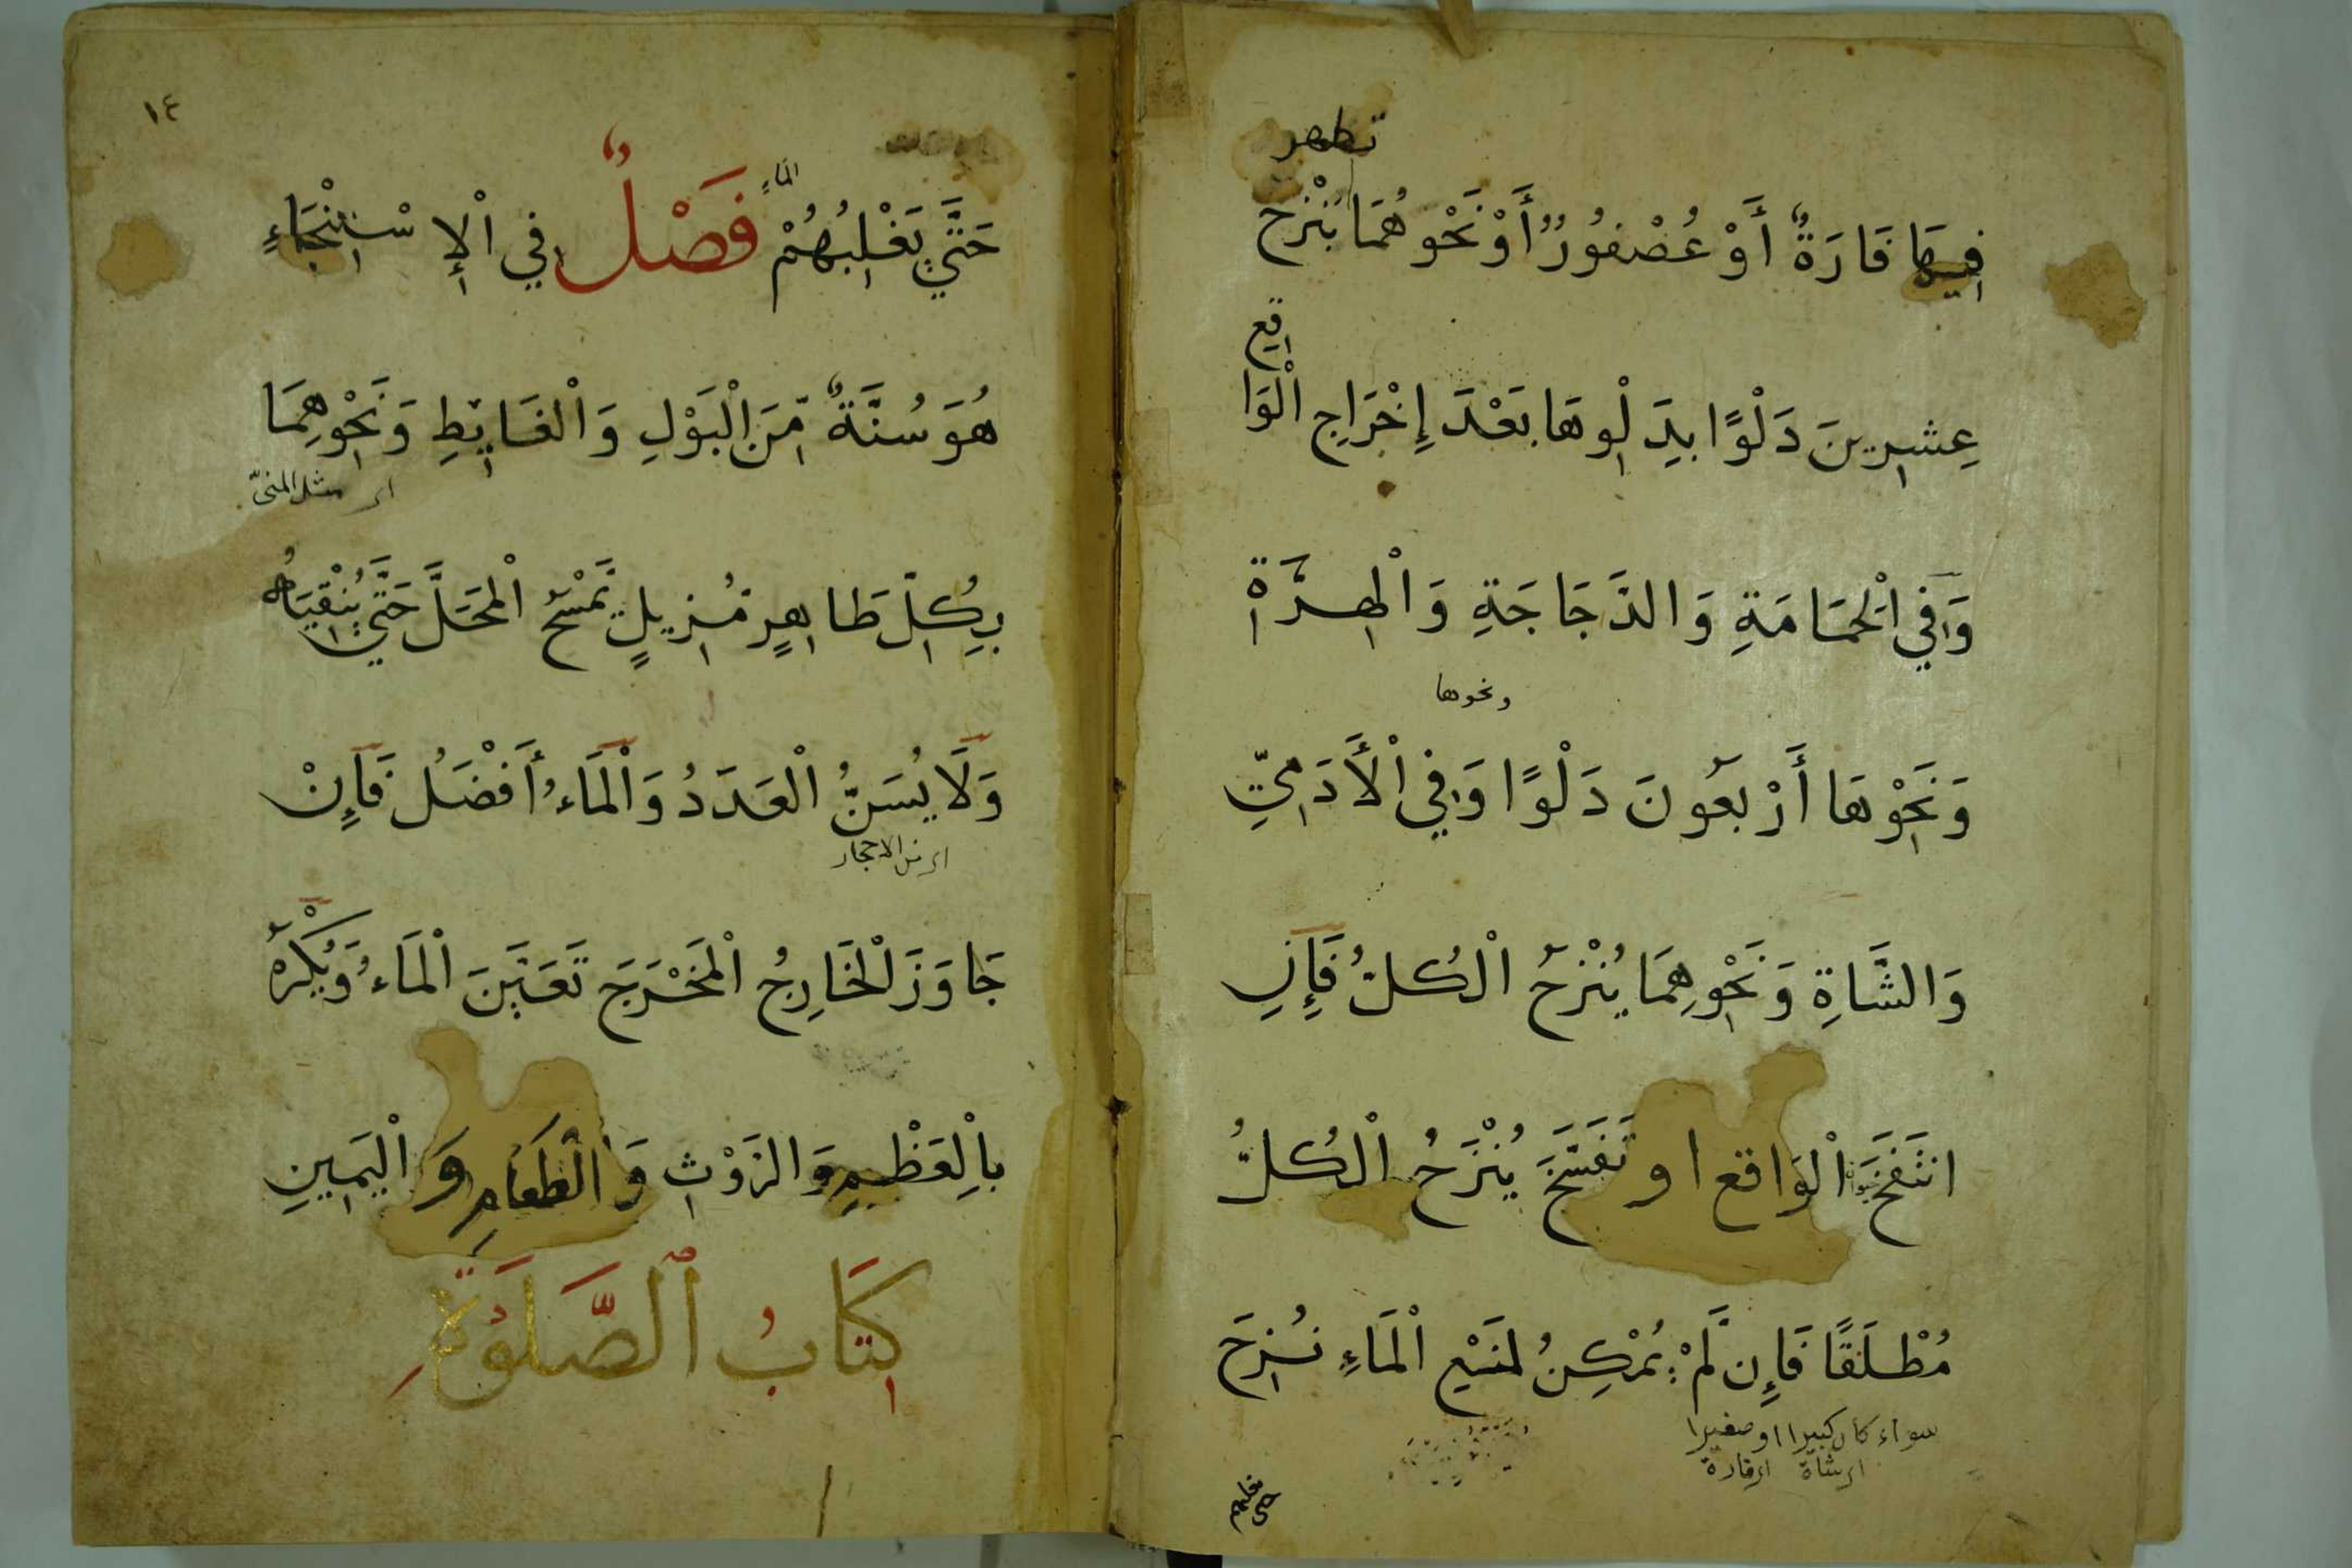 تطهر
فِيهَا فَارَةٌ أَوْ عُصْفُورٌ أَوْ نَحْوُهُمَا يُنْزَحُ
عِشرِينَ دَلْوًا بِدَلْوِهَا بَعْدَ إِخْرَاجِ الْوَا
قِعِ
وَفِي الْحَمَامَةِ وَالدَّجَاجَةِ وَالْهِرَّةِ
ونحوها
وَنَحْوِهَا أَرْبَعُونَ دَلْوًا وَفِي الْأَدَمِيِّ
وَالشَّاةِ وَنَحْوِهِمَا يُنْزَحُ الْكُلُّ فَإِنِ
انتَفَخَ الْوَاقع او تَفَسَّخَ يُنْزَحُ الْكُلُّ
مُطْلَقًا فَإِن لَّمْ يُمْكِنُ لِمَنَبْعِ الْمَاءِ نُزِحَ
سواء كان كبيرا او صغيرا
١٤
الماءُ
حَتَّى يَغْلِبُهُمْ فَصْلٌ فِي الْإِسْتِنْجَاءِ
هُوَ سُنَّةٌ مِّنَ الْبَوْلِ وَالْغَايِطِ وَنَحْوِهِمَا
اي مثل المنيّ
بِكُلِّ طَاهِرٍ مُزِيلٍ يَمْسَحُ الْمَحَلَّ حَتَّى يُنْقِيَاهُ
وَلَا يُسَنُّ الْعَدَدُ وَالْمَاءُ أَفْضَلُ فَإِنْ
اي من الاحجار
جَاوَزَ الْخَارِجُ الْمَخْرَجَ تَعَيَّنَ الْمَاءُ وَيُكْرَهُ
بِالْعَظْمِ وَالرَّوْثِ وَالْطَعَامِ وَالْيَمِينِ
كِتَابُ الصَّلَوٰةِ